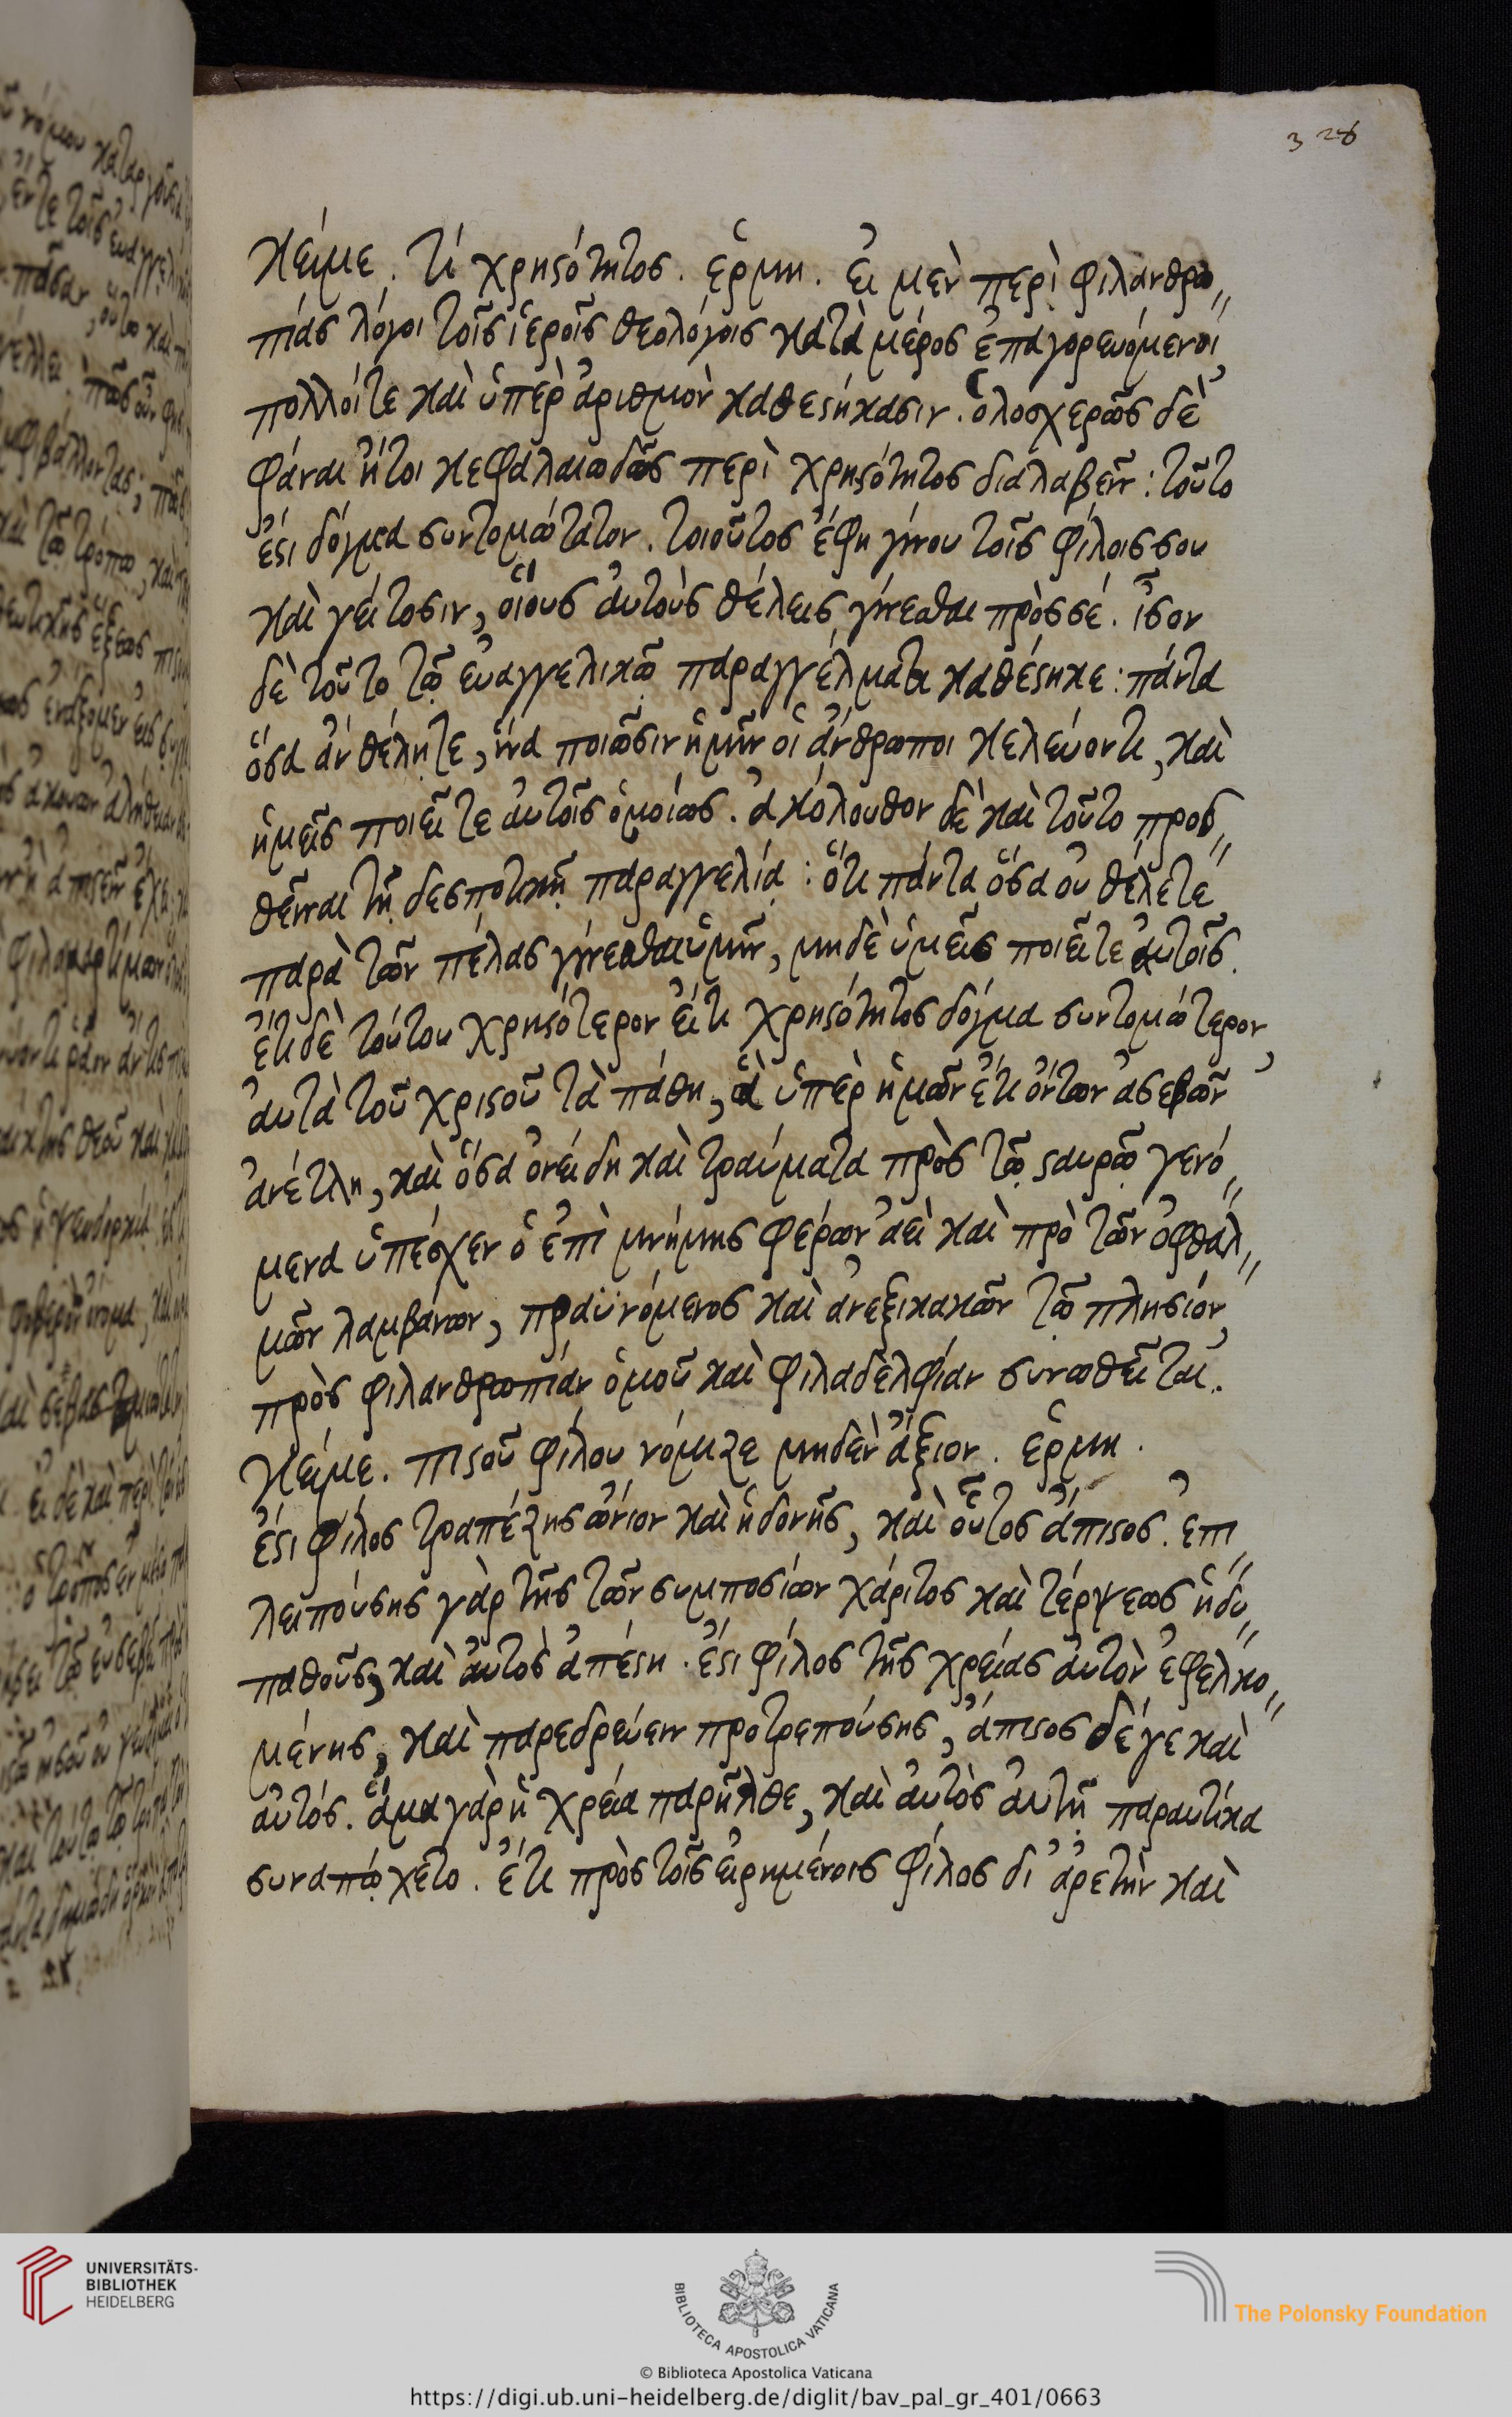 328
κείμε. τί χρηστότητος. ἑρμη. εἰ μὲν περὶ φιλανθρω〃
πίας λόγοι τοῖς ἱεροῖς θεολόγοις κατὰ μέρος ἐπαγορευόμενοι
πολλοί τε καὶ ὑπὲρ ἀριθμὸν καθεστήκασιν. ὁλοσχερῶς δὲ
φάναι ἤτοι κεφαλαιωδῶς περὶ χρηστότητος διαλαβεῖν: τοῦτο
ἐστι δόγμα συντομώτατον. τοιοῦτος ἔφη γίνου τοῖς φίλοις σου
καὶ γείτοσιν, οἵους αὐτοὺς θέλεις γίνεσθαι πρὸς σέ. ἶσον
δὲ τοῦτο τῶ εὐαγγελικῶ παραγγέλματι καθέστηκε: πάντα
ὅσα ἂν θέλητε, ἵνα ποιῶσιν ἡμῖν οἱ ἄνθρωποι κελεύοντι, καὶ
ἡμεῖς ποιεῖτε αὐτοῖς ὁμοίως. ἀκόλουθον δὲ καὶ τοῦτο προσ〃
θεῖναι τῆ δεσποτικῆ παραγγελία: ὅτι πάντα ὅσα οὐ θέλετε
παρὰ τῶν πέλας γίνεσθαι ὑμῖν, μηδὲ ὑμεῖς ποιεῖτε αὐτοῖς.
ἔτι δὲ τούτου χρηστότερον εἴτι χρηστότητος δόγμα συντομώτερον
αὐτὰ τοῦ χριστοῦ τὰ πάθη, ἃ ὑπὲρ ἡμῶν ἔτι ὄντων ἀσεβῶν
ἀνέτλη, καὶ ὅσα ὀνείδη καὶ τραύματα πρὸς τῶ σταυρῶ γενό〃
μενα ὑπέσχεν ὁ ἐπὶ μνήμης φέρων ἀεὶ καὶ πρὸ τῶν ὀφθαλ〃
μῶν λαμβάνων, πραϋνόμενος καὶ ἀνεξικακῶν τῶ πλησίον,
πρὸς φιλανθρωπίαν ὁμοῦ καὶ φιλαδελφίαν συνωθεῖται.
κείμε. πιστοῦ φίλου νόμιζε μηδὲν ἄξιον. ἑρμη.
ἔστι φίλος τραπέζης ὤνιον καὶ ἡδονῆς, καὶ οὗτος ἄπιστος. ἐπι〃
λειπούσης γὰρ τῆς τῶν συμποσίων χάριτος καὶ τέρψεως ἡδυ〃
παθοῦς, καὶ αὐτὸς ἀπέστη. ἔστι φίλος τῆς χρείας αὐτὸν ἐφελκο〃
μένης, καὶ παρεδρεύειν προτρεπούσης, ἄπιστος δέ γε καὶ
αὐτός. ἅμα γὰρ ἡ χρεία παρῆλθε, καὶ αὐτὸς αὐτῆ παραυτίκα
συναπώχετο. ἔτι πρὸς τοῖς εἰρημένοις φίλος δι ἀρετὴν καὶ
UNIVERSITÄTS-
BIBLIOTHEK
HEIDELBERG
BIBLIOTECA APOSTOLICA VATICANA
The Polonsky Foundation
© Biblioteca Apostolica Vaticana
https://digi.ub.uni-heidelberg.de/diglit/bav_pal_gr_401/0663